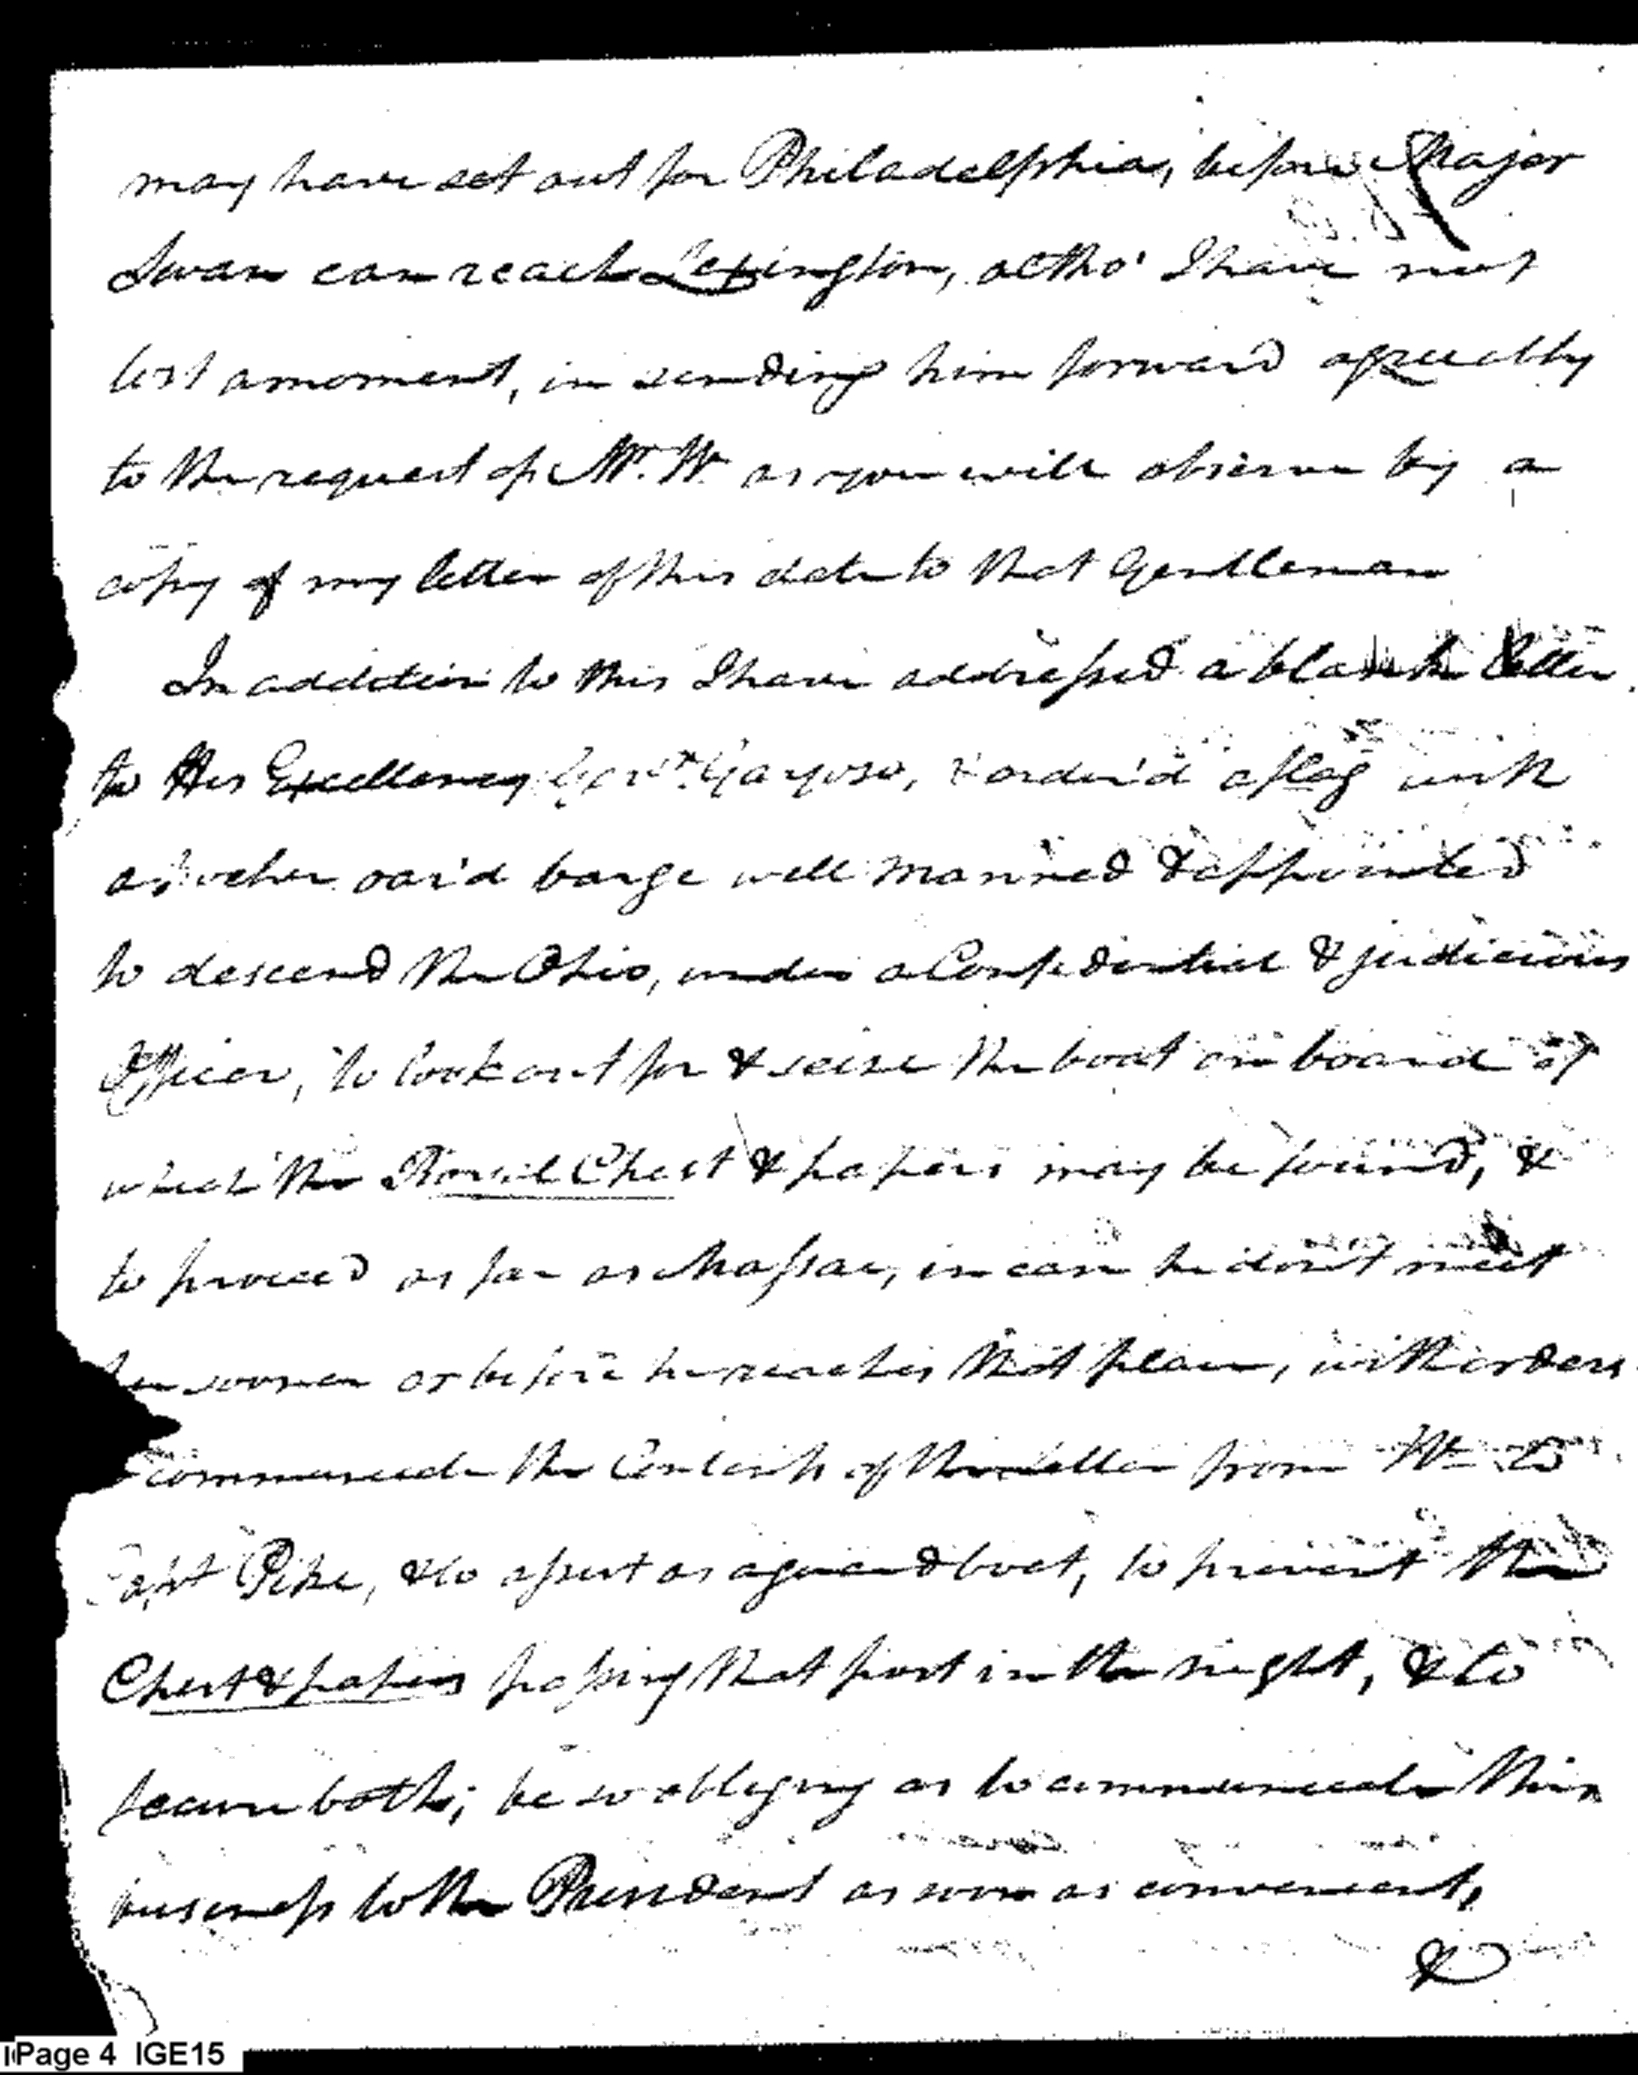 may have set out for Philadelphia, before Major
Swan can reach Lexington, altho' I have not
lost a moment, in sending him forward agreeably
to the request of Mr. W. as you will observe by a
copy of my letter of this date to that Gentleman
In addition to this I have addressed a blank letter
to His Excellency Gayoso, & order'd a flag with
oar'd barge well manned & appointed
to descend the Ohio, under a Confidential & judicious
Officer, to look out for & seise the boat on board of
which the Chest & papers may be found, &
to proceed as far as Massac, in case he don't meet
her sooner or before he reaches that place, with orders
communicate the Contents of the letter from W. to
Capt Pike, & to assist as a guard boat, to prevent the
Chest & papers passing that post in the night, & to
secure both; be so obliging as to communicate this
business to the President as soon as convenient,
&
Page 4 IGE15